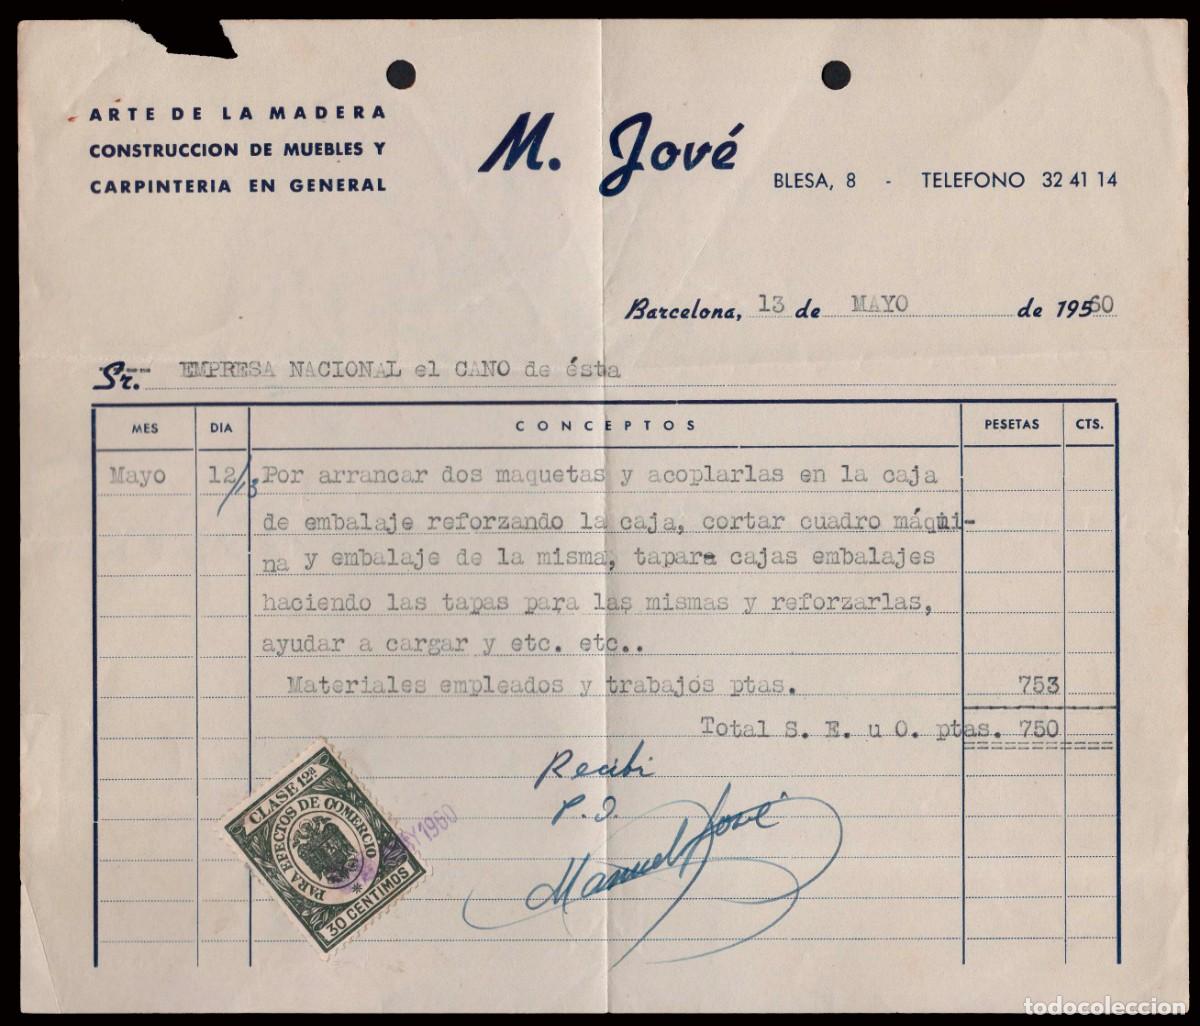 ARTE DE LA MADERA
CONSTRUCCION DE MUEBLES Y
CARPINTERIA EN GENERAL
M. Jové
BLESA, 8 - TELEFONO 32 41 14
Barcelona, 13 de MAYO de 19560
Sr. EMPRESA NACIONAL el CANO de ésta
MES DIA CONCEPTOS PESETAS CTS.
Mayo 12/13 Por arrancar dos maquetas y acoplarlas en la caja
de embalaje reforzando la caja, cortar cuadro máqui-
na y embalaje de la misma, tapara cajas embalajes
haciendo las tapas para las mismas y reforzarlas,
ayudar a cargar y etc. etc..
Materiales empleados y trabajos ptas. 753
Total S. E. u O. ptas. 750
Recibi
P.O.
Manuel Jové
CLASE 12ª
PARA EFECTOS DE COMERCIO
30 CENTIMOS
1960
todocoleccion